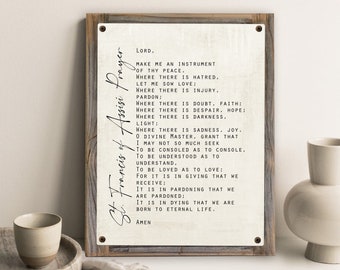 St. Francis of Assisi Prayer
LORD,
MAKE ME AN INSTRUMENT
OF THY PEACE.
WHERE THERE IS HATRED,
LET ME SOW LOVE;
WHERE THERE IS INJURY,
PARDON;
WHERE THERE IS DOUBT, FAITH;
WHERE THERE IS DESPAIR, HOPE;
WHERE THERE IS DARKNESS,
LIGHT;
WHERE THERE IS SADNESS, JOY.
O DIVINE MASTER, GRANT THAT
I MAY NOT SO MUCH SEEK
TO BE CONSOLED AS TO CONSOLE,
TO BE UNDERSTOOD AS TO
UNDERSTAND,
TO BE LOVED AS TO LOVE;
FOR IT IS IN GIVING THAT WE
RECEIVE;
IT IS IN PARDONING THAT WE
ARE PARDONED;
IT IS IN DYING THAT WE ARE
BORN TO ETERNAL LIFE.
AMEN